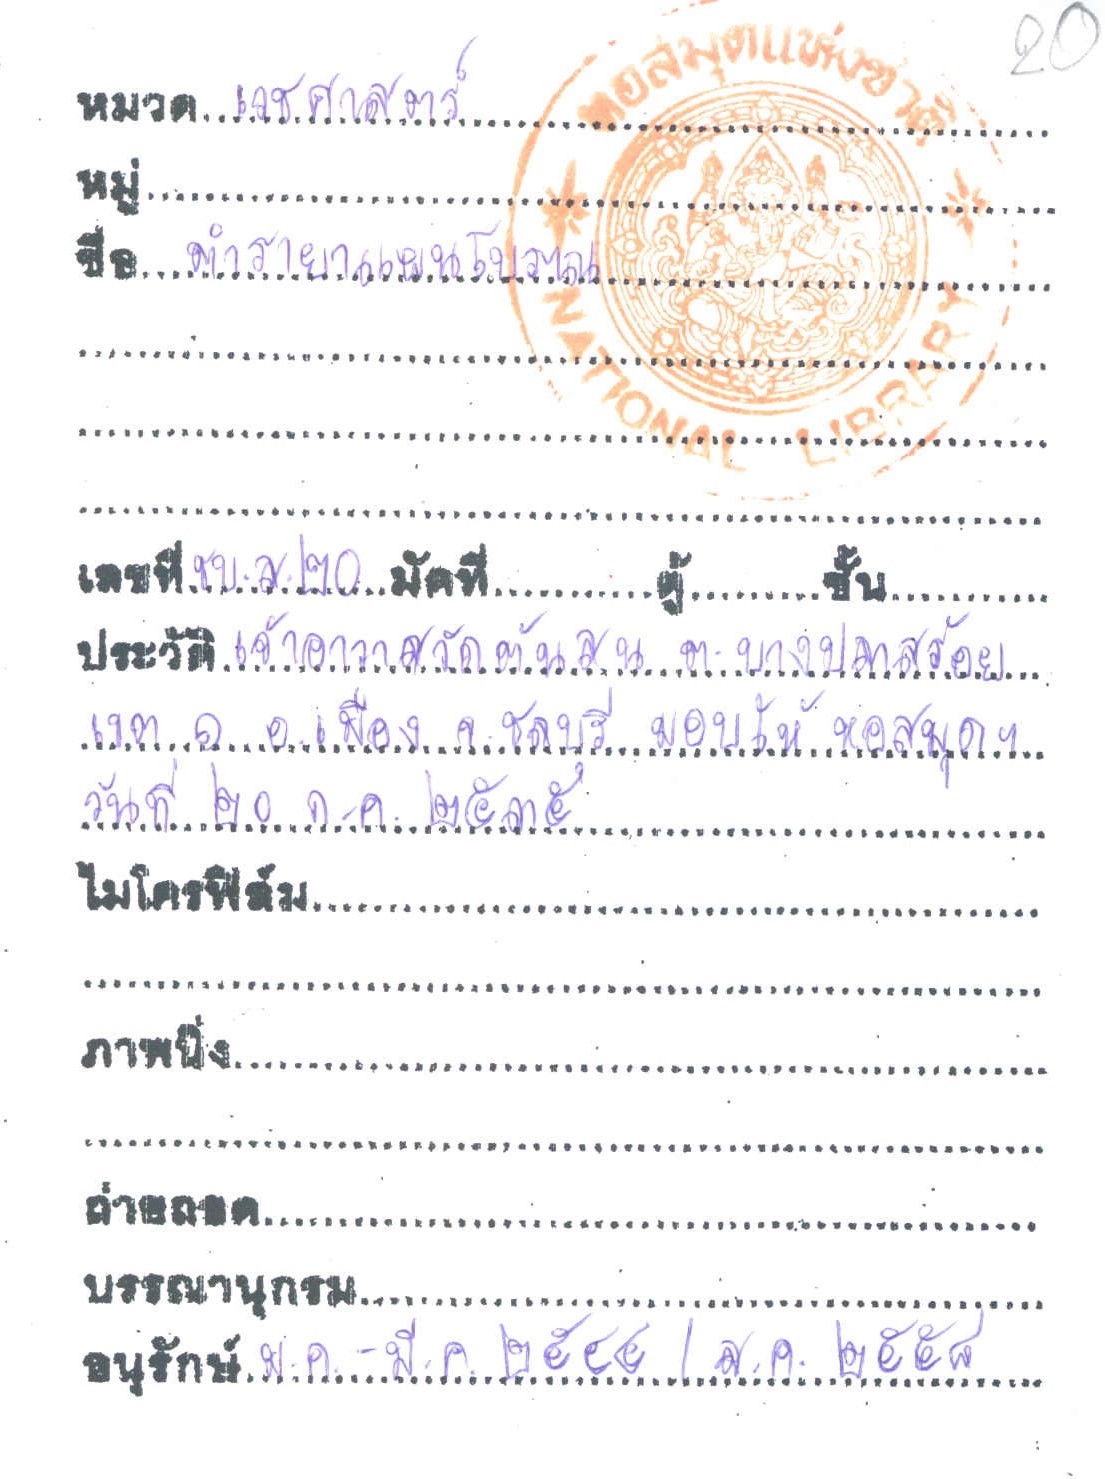 20
หอสมุดแห่งชาติ
NATIONAL LIBRARY
หมวด เวชศาสตร์
หมู่
ชื่อ ตำรายาแผนโบราณ
เลขที่ ชบ.ส.๒๐ มัดที่ ตู้ ชั้น
ประวัติ เจ้าอาวาสวัดต้นสน ต.บางปลาสร้อย
เขต ๑ อ.เมือง จ.ชลบุรี มอบให้ หอสมุดฯ
วันที่ ๒๐ ต.ค. ๒๕๓๕
ไมโครฟิล์ม
ภาพนิ่ง
ถ่ายถอด
บรรณานุกรม
อนุรักษ์ ม.ค. - มี.ค. ๒๕๔๔ / ส.ค. ๒๕๕๘